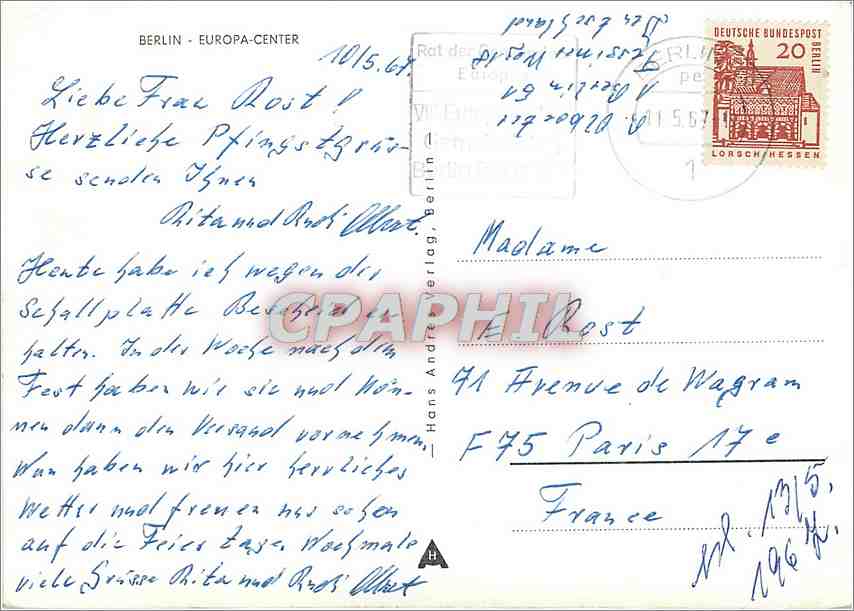 BERLIN - EUROPA-CENTER
10/5.67.
Liebe Frau Rost!
Herzliche Pfingstgrüs-
se senden Ihnen
Rita und Rudi
Heute habe ich wegen der
Schallplatte Bescheid er
halten. In der Woche nach dem
Fest haben wir sie und kön-
nen dann den Versand vornehmen.
Nun haben wir hier herrliches
Wetter und freuen uns schon
auf die Feier tage. Nochmals
viele Grüsse Rita und Rudi
— Hans Andres Verlag, Berlin
H
R.
1 Berlin 61
Deutschland
Rat der
Europa
VII
Berlin
BERLIN
11.5.67
1
DEUTSCHE BUNDESPOST
BERLIN
20
LORSCH/HESSEN
Madame
E Rost
71 Avenue de Wagram
F 75 Paris 17e
France
13/5.
1967.
CPAPHIL